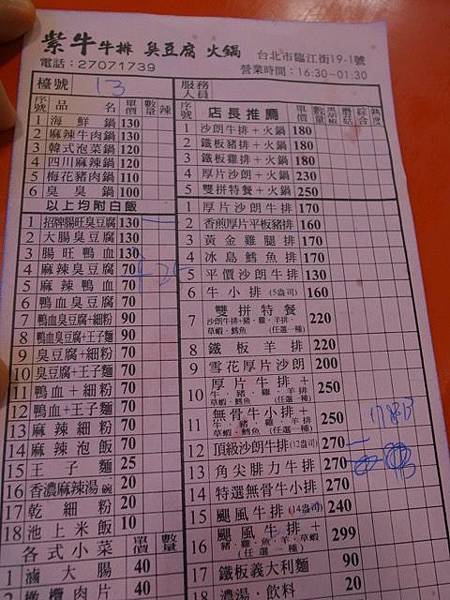 紫牛 牛排 臭豆腐 火鍋 台北市臨江街19-1號
電話：27071739 營業時間：16:30~01:30
檯號 13 服務人員
序號 品名 單價 數量 辣
1 海鮮鍋 130
2 麻辣牛肉鍋 130
3 韓式泡菜鍋 120
4 四川麻辣鍋 120
5 梅花豬肉鍋 110
6 臭臭鍋 100
以上均附白飯
1 招牌腸旺臭豆腐 130
2 大腸臭豆腐 130
3 腸旺鴨血 130
4 麻辣臭豆腐 70
5 麻辣鴨血 70
6 鴨血臭豆腐 70
7 鴨血臭豆腐+細粉 90
8 鴨血臭豆腐+王子麵 90
9 臭豆腐+細粉 70
10 臭豆腐+王子麵 70
11 鴨血+細粉 70
12 鴨血+王子麵 70
13 麻辣細粉 70
14 麻辣泡飯 70
15 王子麵 25
16 香濃麻辣湯 碗 20
17 乾細粉 20
18 池上米飯 10
各式小菜 單價 數量
1 滷大腸 40
2 橄欖肉片 40
序號 店長推薦 單價 數量 黑胡椒 蘑菇 綜合 熟度
1 沙朗牛排+火鍋 180
2 鐵板豬排+火鍋 180
3 鐵板雞排+火鍋 180
4 厚片沙朗+火鍋 230
5 雙拼特餐+火鍋 250
1 厚片沙朗牛排 170
2 香煎厚片平板豬排 160
3 黃金雞腿排 170
4 冰島鱈魚排 170
5 平價沙朗牛排 130
6 牛小排 (5盎司) 160
7 雙拼特餐 220
沙朗牛排+豬．雞．羊排．
草蝦．鱈魚 (任選一種)
8 鐵板羊排 220
9 雪花厚片沙朗 200
10 厚片牛排+ 250
牛．豬．雞．羊排
草蝦．鱈魚 (任選一種)
11 無骨牛小排+ 250
牛．豬．雞．羊排
草蝦．鱈魚 (任選一種)
12 頂級沙朗牛排 (12盎司) 270
13 角尖腓力牛排 270
14 特選無骨牛小排 270
15 颶風牛排 (14盎司) 240
16 颶風牛排+ 299
豬．雞．魚．羊．蝦
(任選一種)
17 鐵板義大利麵 90
18 濃湯．飲料 20